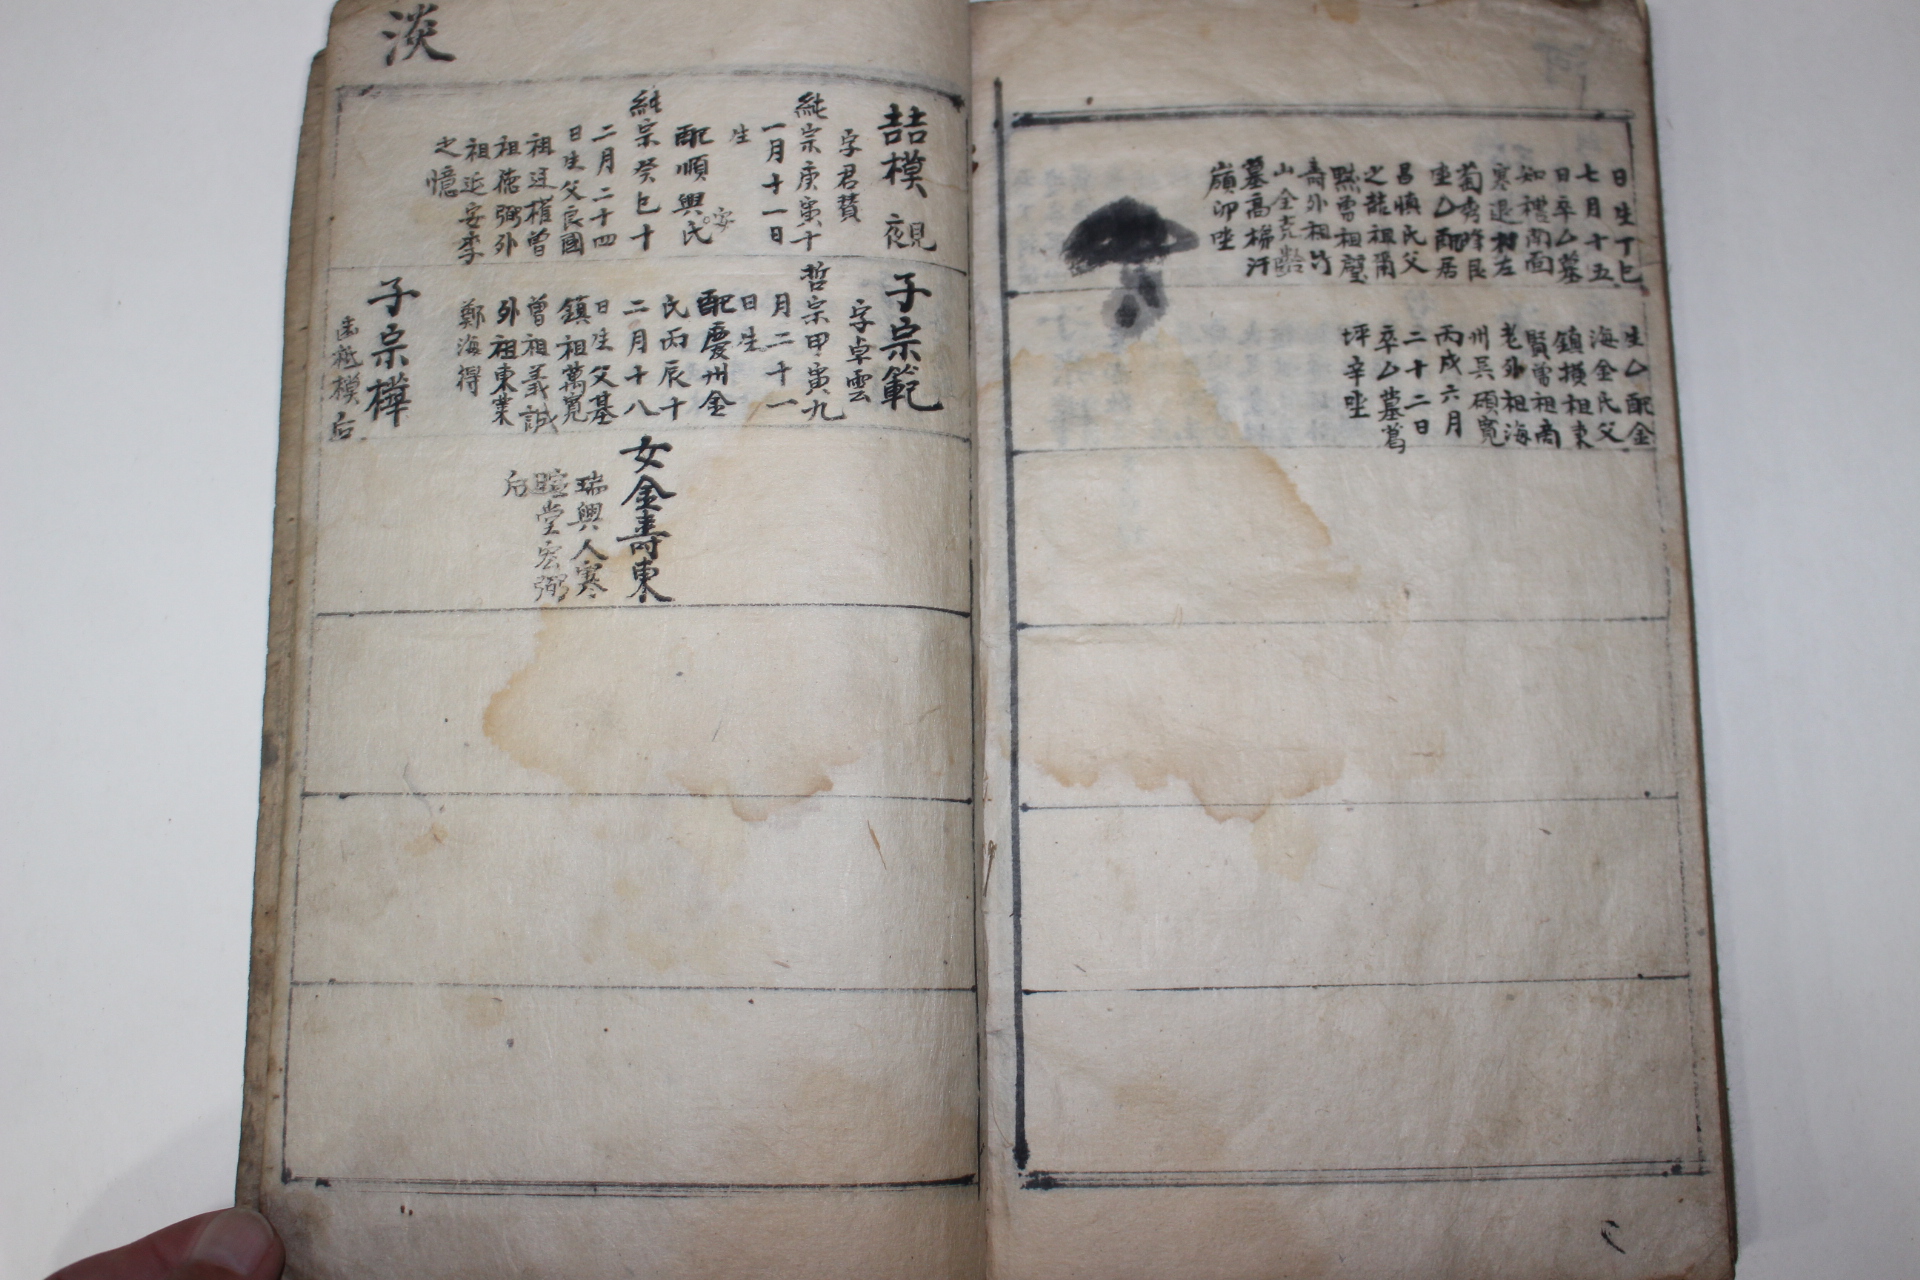 日生丁巳
七月十五
日卒乙墓
知禮南面
寒退村左
萄秀峰艮
坐乙配居
昌愼氏父
之龍祖爾
黙曾祖
壽外祖竹
山全克
墓高梯汗
嶺卯坐
生乙配金
海金氏父
鎮損祖東
賢曾祖尚
老外祖海
州吳碩寬
丙戌六月
二十二日
卒乙墓葛
坪辛坐
淡
喆模
覡
字君賛
純宗庚寅十
一月十一日
生
配順興安氏
純宗癸巳十
二月二十四
日生父良國
祖廷權曾
祖德弼外
祖延安李
之憶
子宗範
字卓雲
哲宗甲寅九
月二十一
日生
配慶州金
氏丙辰十
二月十八
日生父基
鎮祖萬寬
曾祖義誠
外祖東萊
鄭海得
子宗樺
出祗模后
女金壽東
瑞興人寒
暄堂宏弼
后